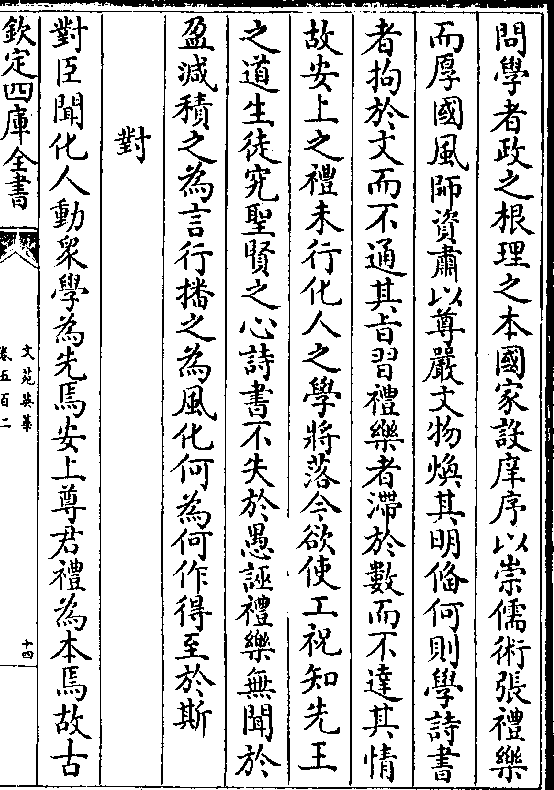 問學者政之根理之本國家設庠序以崇儒術張禮樂
而厚國風師資肅以尊嚴文物煥其明備何則學詩書
者拘於文而不通其旨習禮樂者滯於數而不達其情
故安上之禮未行化人之學將落今欲使工祝知先王
之道生徒究聖賢之心詩書不失於愚誣禮樂無聞於
盈減積之為言行播之為風化何為何作得至於斯
對
對臣聞化人動衆學為先焉安上尊君禮為本焉故古
欽定四庫全書
文苑英華
卷五百二
十四